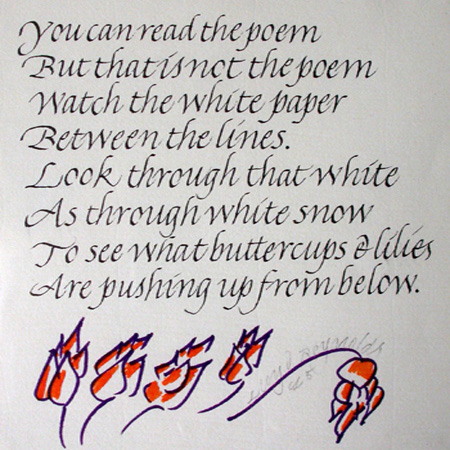 You can read the poem
But that is not the poem
Watch the white paper
Between the lines.
Look through that white
As through white snow
To see what buttercups & lilies
Are pushing up from below.
Lloyd Reynolds